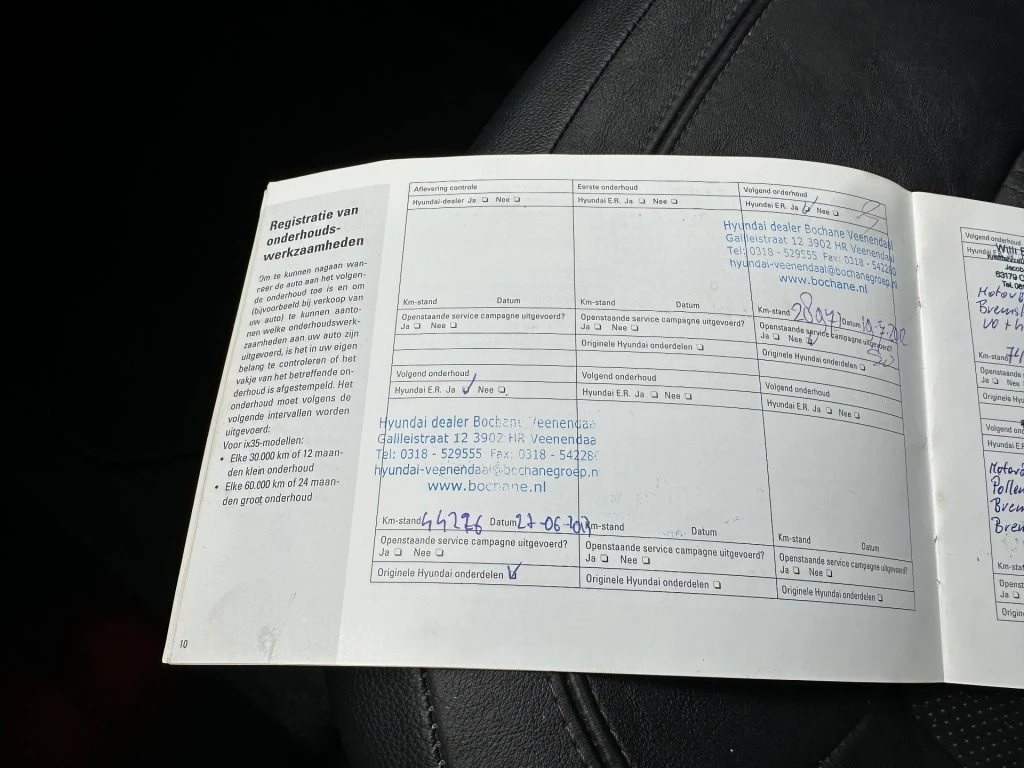 Registratie van
onderhouds-
werkzaamheden
Om te kunnen nagaan wan-
neer de auto aan het volgen-
de onderhoud toe is en om
(bijvoorbeeld bij verkoop van
uw auto) te kunnen aanto-
nen welke onderhoudswerk-
zaamheden aan uw auto zijn
uitgevoerd, is het in uw eigen
belang te controleren of het
vakje van het betreffende on-
derhoud is afgestempeld. Het
onderhoud moet volgens de
volgende intervallen worden
uitgevoerd:
Voor ix35-modellen:
• Elke 30.000 km of 12 maan-
den klein onderhoud
• Elke 60.000 km of 24 maan-
den groot onderhoud
10
Aflevering controle
Hyundai-dealer Ja ❏ Nee ❏
Km-stand Datum
Openstaande service campagne uitgevoerd?
Ja ❏ Nee ❏
Eerste onderhoud
Hyundai E.R. Ja ❏ Nee ❏
Km-stand Datum
Openstaande service campagne uitgevoerd?
Ja ❏ Nee ❏
Originele Hyundai onderdelen ❏
Volgend onderhoud
Hyundai E.R. Ja ❏ Nee ❏
Hyundai dealer Bochane Veenendaal
Galileistraat 12 3902 HR Veenendaal
Tel: 0318 - 529555 Fax: 0318 - 542280
hyundai-veenendaal@bochanegroep.nl
www.bochane.nl
Km-stand Datum 10-7-2012
Openstaande service campagne uitgevoerd?
Ja ❏ Nee ❏
Originele Hyundai onderdelen ❏
Volgend onderhoud
Hyundai E.R. Ja ❏ Nee ❏
Hyundai dealer Bochane Veenendaa
Galileistraat 12 3902 HR Veenendaa
Tel: 0318 - 529555 Fax: 0318 - 54228
hyundai-veenendaal@bochanegroep.n
www.bochane.nl
Km-stand 44276 Datum 27-06-2013
Openstaande service campagne uitgevoerd?
Ja ❏ Nee ❏
Originele Hyundai onderdelen ❏
Volgend onderhoud
Hyundai E.R. Ja ❏ Nee ❏
Km-stand Datum
Openstaande service campagne uitgevoerd?
Ja ❏ Nee ❏
Originele Hyundai onderdelen ❏
Volgend onderhoud
Hyundai E.R. Ja ❏ Nee ❏
Km-stand Datum
Openstaande service campagne uitgevoerd?
Ja ❏ Nee ❏
Originele Hyundai onderdelen ❏
Volgend onderhoud
Jacob
63179
Km-stand 74
Openstaande
Originele Hy
Volgend on
Hyundai E.
Pollen
Brem
Brem
Km-sta
Openst
Ja ❏
Origin